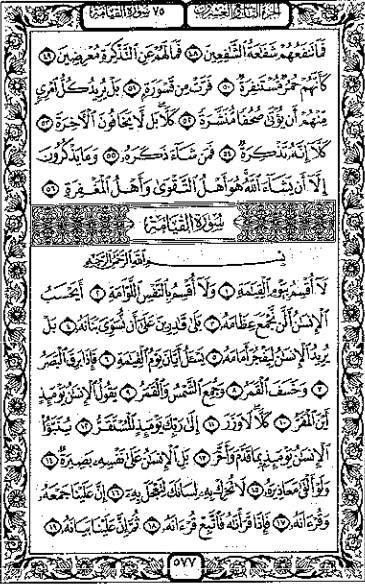 ٧٥ سورة القيامة الجزء التاسع والعشرون
فَمَا تَنفَعُهُمْ شَفَاعَةُ الشَّافِعِينَ ٤٨ فَمَا لَهُمْ عَنِ التَّذْكِرَةِ مُعْرِضِينَ ٤٩
كَأَنَّهُمْ حُمُرٌ مُسْتَنْفِرَةٌ ٥٠ فَرَّتْ مِنْ قَسْوَرَةٍ ٥١ بَلْ يُرِيدُ كُلُّ امْرِئٍ
مِنْهُمْ أَنْ يُؤْتَى صُحُفًا مُنَشَّرَةً ٥٢ كَلَّا بَلْ لَا يَخَافُونَ الْآخِرَةَ ٥٣
كَلَّا إِنَّهُ تَذْكِرَةٌ ٥٤ فَمَنْ شَاءَ ذَكَرَهُ ٥٥ وَمَا يَذْكُرُونَ
إِلَّا أَنْ يَشَاءَ اللَّهُ هُوَ أَهْلُ التَّقْوَى وَأَهْلُ الْمَغْفِرَةِ ٥٦
سورة القيامة
بسم الله الرحمن الرحيم
لَا أُقْسِمُ بِيَوْمِ الْقِيَامَةِ ١ وَلَا أُقْسِمُ بِالنَّفْسِ اللَّوَّامَةِ ٢ أَيَحْسَبُ
الْإِنْسَانُ أَلَّنْ نَجْمَعَ عِظَامَهُ ٣ بَلَى قَادِرِينَ عَلَى أَنْ نُسَوِّيَ بَنَانَهُ ٤ بَلْ
يُرِيدُ الْإِنْسَانُ لِيَفْجُرَ أَمَامَهُ ٥ يَسْأَلُ أَيَّانَ يَوْمُ الْقِيَامَةِ ٦ فَإِذَا بَرِقَ الْبَصَرُ
٧ وَخَسَفَ الْقَمَرُ ٨ وَجُمِعَ الشَّمْسُ وَالْقَمَرُ ٩ يَقُولُ الْإِنْسَانُ يَوْمَئِذٍ
أَيْنَ الْمَفَرُّ ١٠ كَلَّا لَا وَزَرَ ١١ إِلَى رَبِّكَ يَوْمَئِذٍ الْمُسْتَقَرُّ ١٢ يُنَبَّأُ
الْإِنْسَانُ يَوْمَئِذٍ بِمَا قَدَّمَ وَأَخَّرَ ١٣ بَلِ الْإِنْسَانُ عَلَى نَفْسِهِ بَصِيرَةٌ ١٤
وَلَوْ أَلْقَى مَعَاذِيرَهُ ١٥ لَا تُحَرِّكْ بِهِ لِسَانَكَ لِتَعْجَلَ بِهِ ١٦ إِنَّ عَلَيْنَا جَمْعَهُ
وَقُرْآنَهُ ١٧ فَإِذَا قَرَأْنَاهُ فَاتَّبِعْ قُرْآنَهُ ١٨ ثُمَّ إِنَّ عَلَيْنَا بَيَانَهُ ١٩
٥٧٧